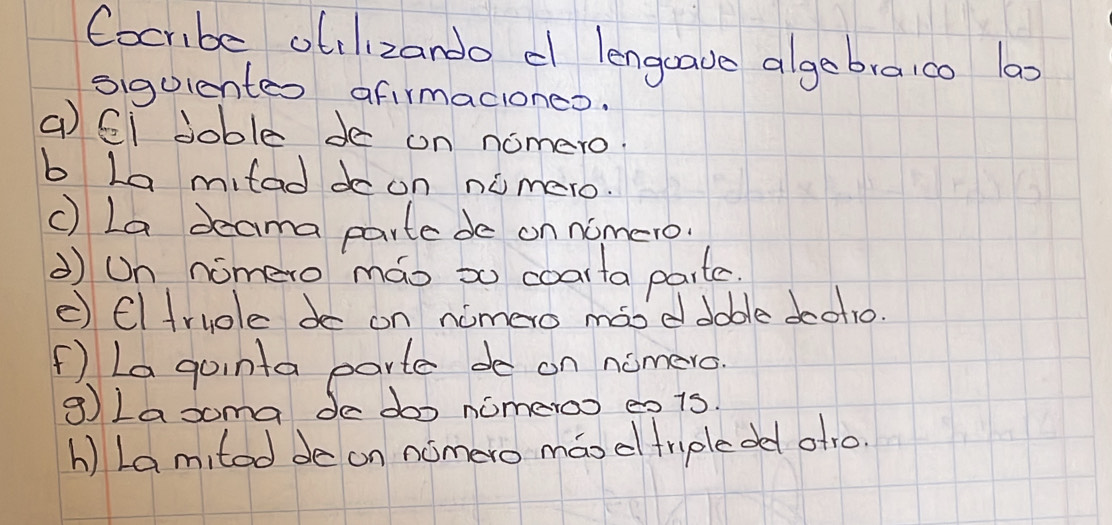 Escribe utilizando el lenguaje algebraico las
siguientes afirmaciones.
a) El doble de un número.
b La mitad de un número.
c) La decima parte de un número.
d) Un número más su cuarta parte.
e) El triple de un número más el doble de otro.
f) La quinta parte de un número.
g) La suma de dos números es 15.
h) La mitad de un número más el triple del otro.